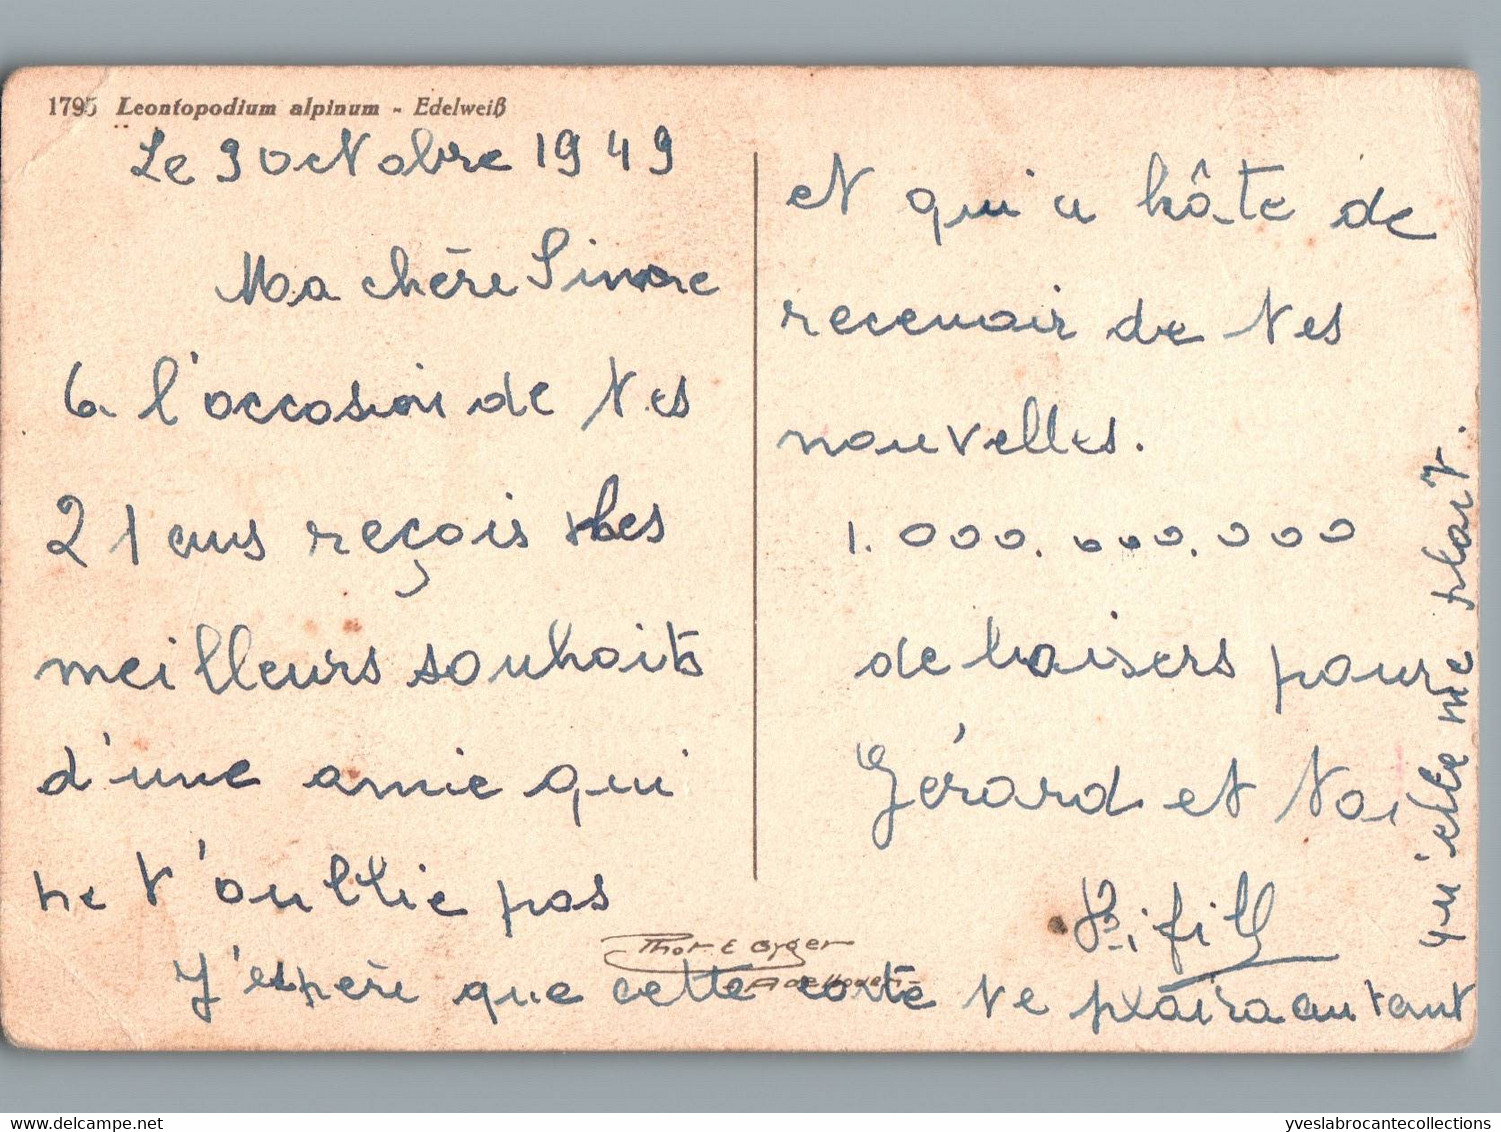 1795 Leontopodium alpinum - Edelweiß
Le 9 octobre 1949
Ma chère Simone
à l'occasion de tes
21 ans reçois les
meilleurs souhaits
d'une amie qui
ne t'oublie pas
et qui a hâte de
recevoir de tes
nouvelles.
1.000.000.000
de baisers pour
Gérard et toi
Thor E Gyger
Adelboden
J'espère que cette carte te plaira autant
qu'elle me plait.
yveslabrocantecollections